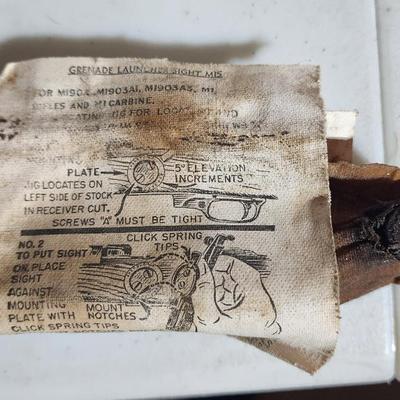 GRENADE LAUNCHER SIGHT M15
FOR M1903, M1903A1, M1903A3, M1,
RIFLES AND M1 CARBINE.
JIG FOR
PLATE
5° ELEVATION
INCREMENTS
JIG LOCATES ON
LEFT SIDE OF STOCK
IN RECEIVER CUT.
SCREWS "A" MUST BE TIGHT
NO. 2
TO PUT SIGHT
ON, PLACE
SIGHT
AGAINST
MOUNTING
PLATE WITH
CLICK SPRING TIPS
CLICK SPRING
TIPS
MOUNT
NOTCHES